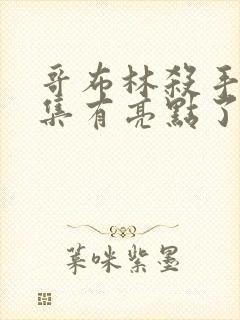 哥布林殺手
集有亮點了
菜咪紫墨